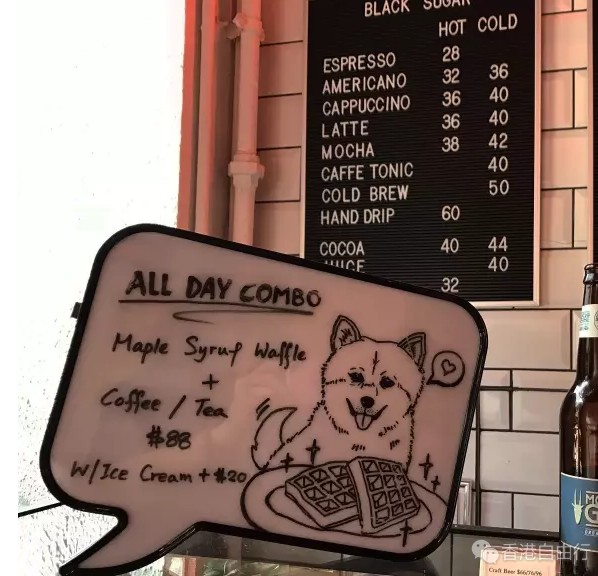 BLACK SUGAR
HOT COLD
ESPRESSO 28
AMERICANO 32 36
CAPPUCCINO 36 40
LATTE 36 40
MOCHA 38 42
CAFFE TONIC 40
COLD BREW 50
HAND DRIP 60
COCOA 40 44
JUICE 40
32
ALL DAY COMBO
Maple Syrup Waffle
+
Coffee / Tea
$88
W/Ice Cream + $20
Craft Beer $66/76/96
香港自由行